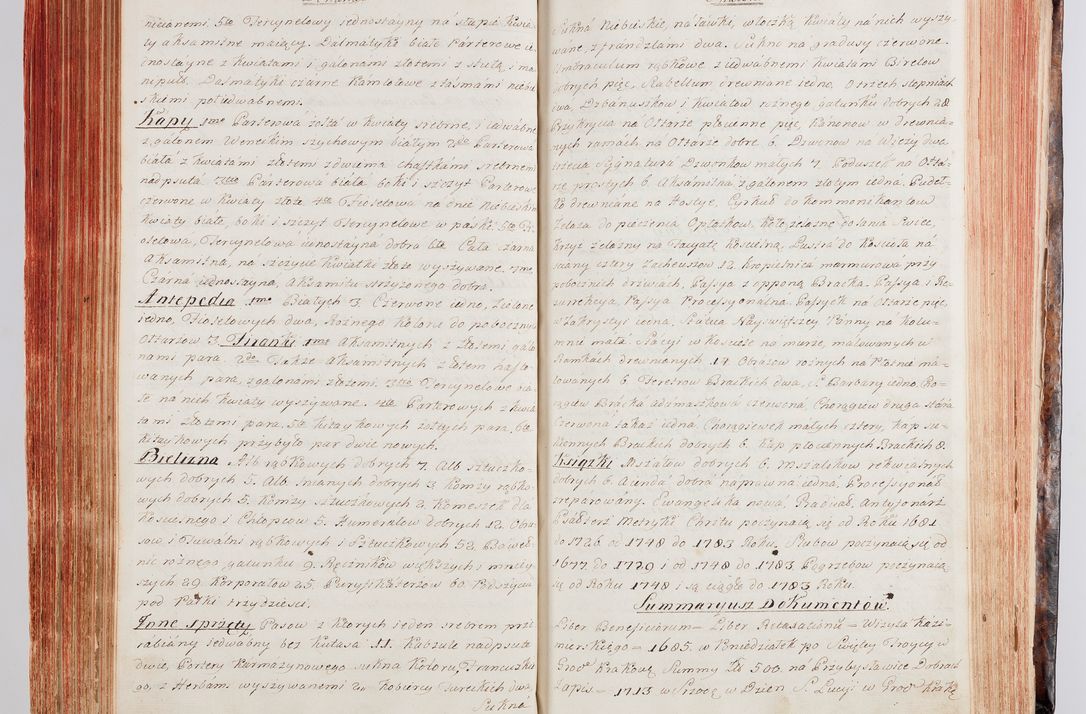 nicianemi 5ta Tercynelowy jednostayny na słupie kwia-
ty aksamitne maiący. Dalmatyki białe Parterowe je-
dnostayne z kwiatami i galonami złotemi z stułą i ma-
nipuł. Dalmatyki czarne Kamlotowe z taśmami niebie-
skiemi pół jedwabnemi.
Kapy 1mo Parterowa żółta w kwiaty srebrne, i jedwabne
z galonem Weneckim szychowym białym 2do Parterowa
biała z kwiatami złotemi z dwiema chaftkami srebrnemi
nadpsuta 3tio Parterowa biała boki i szczyt Parterowe
czerwone w kwiaty złote 4to Fioletowa na dnie niebieskim
kwiaty białe, boki i szczyt Tercynelowe w paski. 5to Fi-
oletowa, Tercynelowa jednostayna dobra 6to Cała czarna
Aksamitna, na szczycie kwiatki złote wyszywane. 7mo
Czarna jednostayna, aksamitu strzyżonego dobra.
Antepedia 1mo Białych 3 Czerwone jedno, Zielone
jedno, Fioletowych dwa, Rożnego Koloru do pobocznych
Ołtarzow 3. Firanki 1mo Aksamitnych z złotemi galo-
nami para 2do Także Aksamitnych z złotem hafto-
wanych para, z galonami złotemi. 3tio Tercynelowe bia-
łe na nich kwiaty wyszywane 4to Parterowych z kwia-
tami złotemi para, 5to Kitaykowych żółtych para, 6to
kitaykowych przybyło par dwie nowych.
Bielizna Alb rąbkowych dobrych 7. Alb sztuczko-
wych dobrych 5. Alb lnianych dobrych 3 Komży rąbko-
wych dobrych 5. Komży sztuczkowych 2. Komeszek dla
Kościelnego i Chłopcow 5. Humerałow dobrych 12. Obru-
sow i Tuwalni rąbkowych i sztuczkowych 52. Baweł-
nic rożnego gatunku 9. Ręcznikow większych i mniey-
szych 29. Korporałow 25. Puryfikaterzow 60 Podszycia
pod Palki trzydzieści.
Inne sprzęty Pasow z ktorych jeden srebrem prze-
rabiany jedwabny bez kutasa 11. Kabzule nadpsute
dwie, Portery karmazynowego sukna koloru, Francuskie-
go, z Herbami wyszywanemi 2. Kobiercy Tureckich dwa,
Sukna
Sukna Niebieskie, na ławki, włoczką kwiaty na nich wyszy-
wane, z frandzlami dwa. Sukno na gradusy czerwone.
Umbraculum rąbkowe z jedwabnemi kwiatami Biretow
dobrych pięć, Rabellum drewniane jedno, o trzech stopniach
dwa, Dzbanuszkow i kwiatow rożnego gatunku dobrych 28.
Przykrycia na Ołtarze płucienne pięć, Kanonow w Drewnia-
nych ramach na Ołtarze dobre 6. Dzwonow na Wieży dwa
trzecia Sygnatura Dzwonkow małych 7. Poduszek na Ołta-
rze prostych 6. Aksamitna z galonem złotym jedna. Pudeł-
ko drewniane na Hostye, Cyrkuł do kommunikantow
Żelaza do pieczenia Opłatkow, Koło żelazne do lania Swiec,
Krzyż żelazny na Facyatę Kościelną. Lustra do Kościoła na
sciany cztery Zacheuszow 12. Kropielnica marmurowa przy
pobocznych drzwiach, Passya z oponą Bracka. Passya i Re-
surrekcya, Passya Processyonalna. Passyek na Ołtarze pięć,
w Zakrystyi jedna, Statua Nayświętszey Panny na kolu-
mnie mała. Stacyi w Kościele na murze, malowanych w
Ramkach drewnianych 14. Obrazow rożnych na Płotnie ma-
lowanych 6. Feretrow Brackich dwa, S. Barbary jedno. Cho-
rągiew Bracka adamaszkowa czerwona, Chorągiew druga stara
Czerwona takaż jedna, Chorągiewek małych cztery, kap su-
kiennych Brackich dobrych 6. Kap płóciennych Brackich 8.
Książki Mszałow dobrych 6. mszałikow rekwialnych
dobrych 6. Agenda dobra naprawna jedna, Processyonał
zreparowany. Ewangeliczka nowa, Graduał, Antyfonarz
Psałterz Metryki Chrztu poczynaią się od Roku 1681
do 1726 od 1748 do 1783 Roku. Slubow poczynaią się od
1677 do 1729 i od 1748 do 1783 Pogrzebow poczynaią
się od Roku 1748 i są ciągle do 1783 Roku.
Summaryusz Dokumentów.
Liber Beneficiorum = Liber Retaxationū = Wizyta Kazi-
mierskiego = 1685. w Poniedziałek po Swiętey Troycy w
Grodzie Krakow. Summy Zł 500 na Przybysławice Dobrach
Zapis = 1713 w Srzodę w Dzień S. Łucyi w Grodzie Krak.